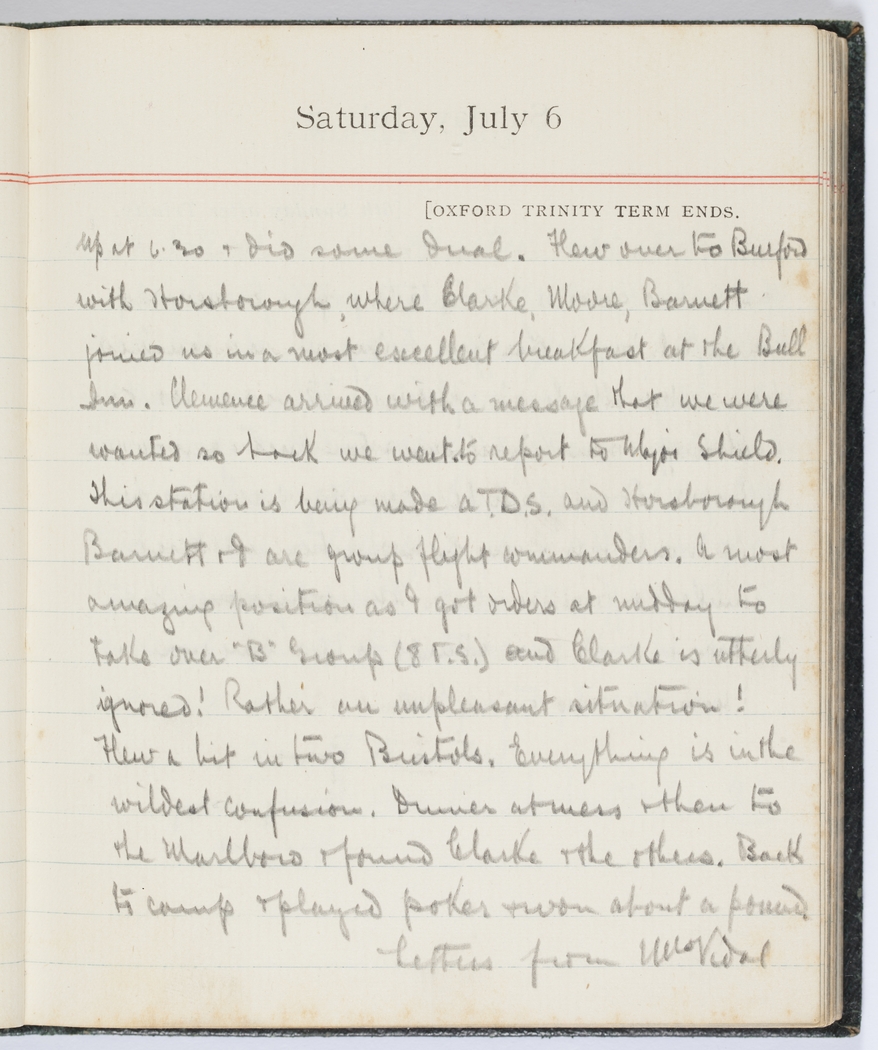 Saturday, July 6
[OXFORD TRINITY TERM ENDS.
Up at 6.30 + did some dual. Flew over to Burford
with Horsborough, where Clarke, Moore, Barnett
joined us in a most excellent breakfast at the Bull
Inn. Clemence arrived with a message that we were
wanted so back we went to report to Major Shield.
This station is being made a T.D.S. and Horsborough
Barnett + I are group flight commanders. A most
amazing position as I got orders at midday to
take over "B" Group (8 T.S.) and Clarke is utterly
ignored! Rather an unpleasant situation!
Flew a bit in two Bristols. Everything is in the
wildest confusion. Dinner at mess + then to
the Marlboro + found Clarke + the others. Back
to camp + played poker + won about a pound.
Letters from Vidal